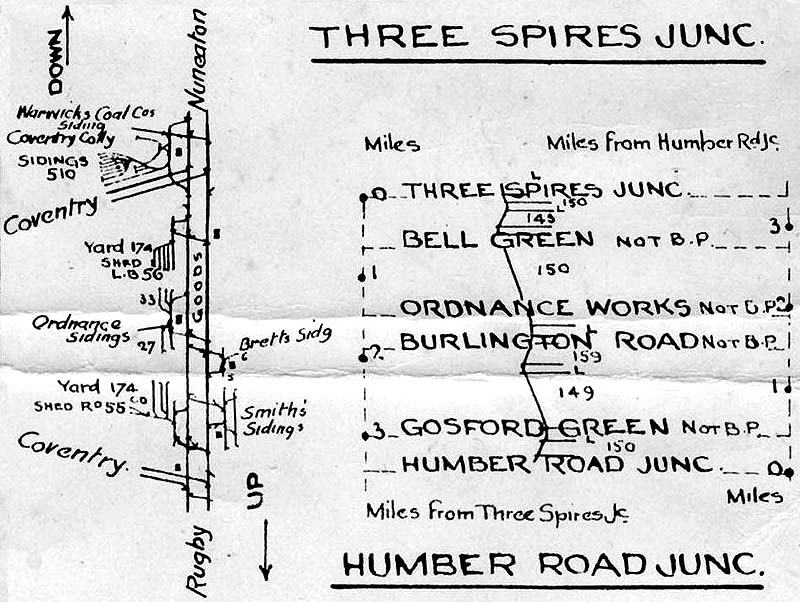 THREE SPIRES JUNC.
DOWN
Nuneaton
Warwicks Coal Cos
Siding
Coventry Colly
SIDINGS
510
Coventry
Yard 174
SHED
L.B 56
GOODS
33
Ordnance
Sidings
27
Bretts Sidg
6
5
Yard 174
SHED RD 55
60
Smith's
Sidings
Coventry.
UP
Rugby
Miles
Miles from Humber Rd Jc
0
THREE SPIRES JUNC.
L
150
L
143
3
BELL GREEN NOT B.P.
1
150
ORDNANCE WORKS NOT B.P.
2
BURLINGTON ROAD NOT B.P.
2
L
159
L
149
1
3
GOSFORD GREEN NOT B.P.
L
150
HUMBER ROAD JUNC.
0
Miles
Miles from Three Spires Jc.
HUMBER ROAD JUNC.